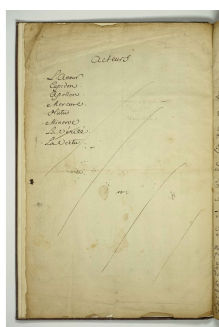 Acteurs
L'Amour
Cupidon
Apollon
Mercure
Plutus
Minerve
La Vérité
La Vertu